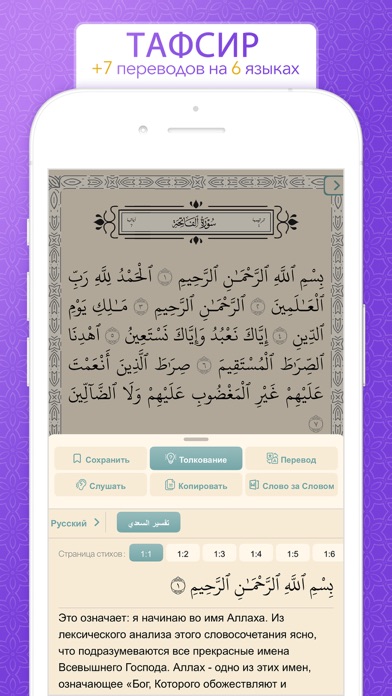 ТАФСИР
+7 переводов на 6 языках
سُورَةُ ٱلْفَاتِحَةِ
بِسْمِ ٱللَّهِ ٱلرَّحْمَٰنِ ٱلرَّحِيمِ ١ ٱلْحَمْدُ لِلَّهِ رَبِّ
ٱلْعَٰلَمِينَ ٢ ٱلرَّحْمَٰنِ ٱلرَّحِيمِ ٣ مَٰلِكِ يَوْمِ
ٱلدِّينِ ٤ إِيَّاكَ نَعْبُدُ وَإِيَّاكَ نَسْتَعِينُ ٥ ٱهْدِنَا
ٱلصِّرَٰطَ ٱلْمُسْتَقِيمَ ٦ صِرَٰطَ ٱلَّذِينَ أَنْعَمْتَ
عَلَيْهِمْ غَيْرِ ٱلْمَغْضُوبِ عَلَيْهِمْ وَلَا ٱلضَّآلِّينَ
٧
Сохранить Толкование Перевод
Слушать Копировать Слово за Словом
Русский تفسير السعدي
Страница стихов : 1:1 1:2 1:3 1:4 1:5 1:6
بِسْمِ ٱللَّهِ ٱلرَّحْمَٰنِ ٱلرَّحِيمِ ١
Это означает: я начинаю во имя Аллаха. Из
лексического анализа этого словосочетания ясно,
что подразумеваются все прекрасные имена
Всевышнего Господа. Аллах - одно из этих имен,
означающее «Бог, Которого обожествляют и